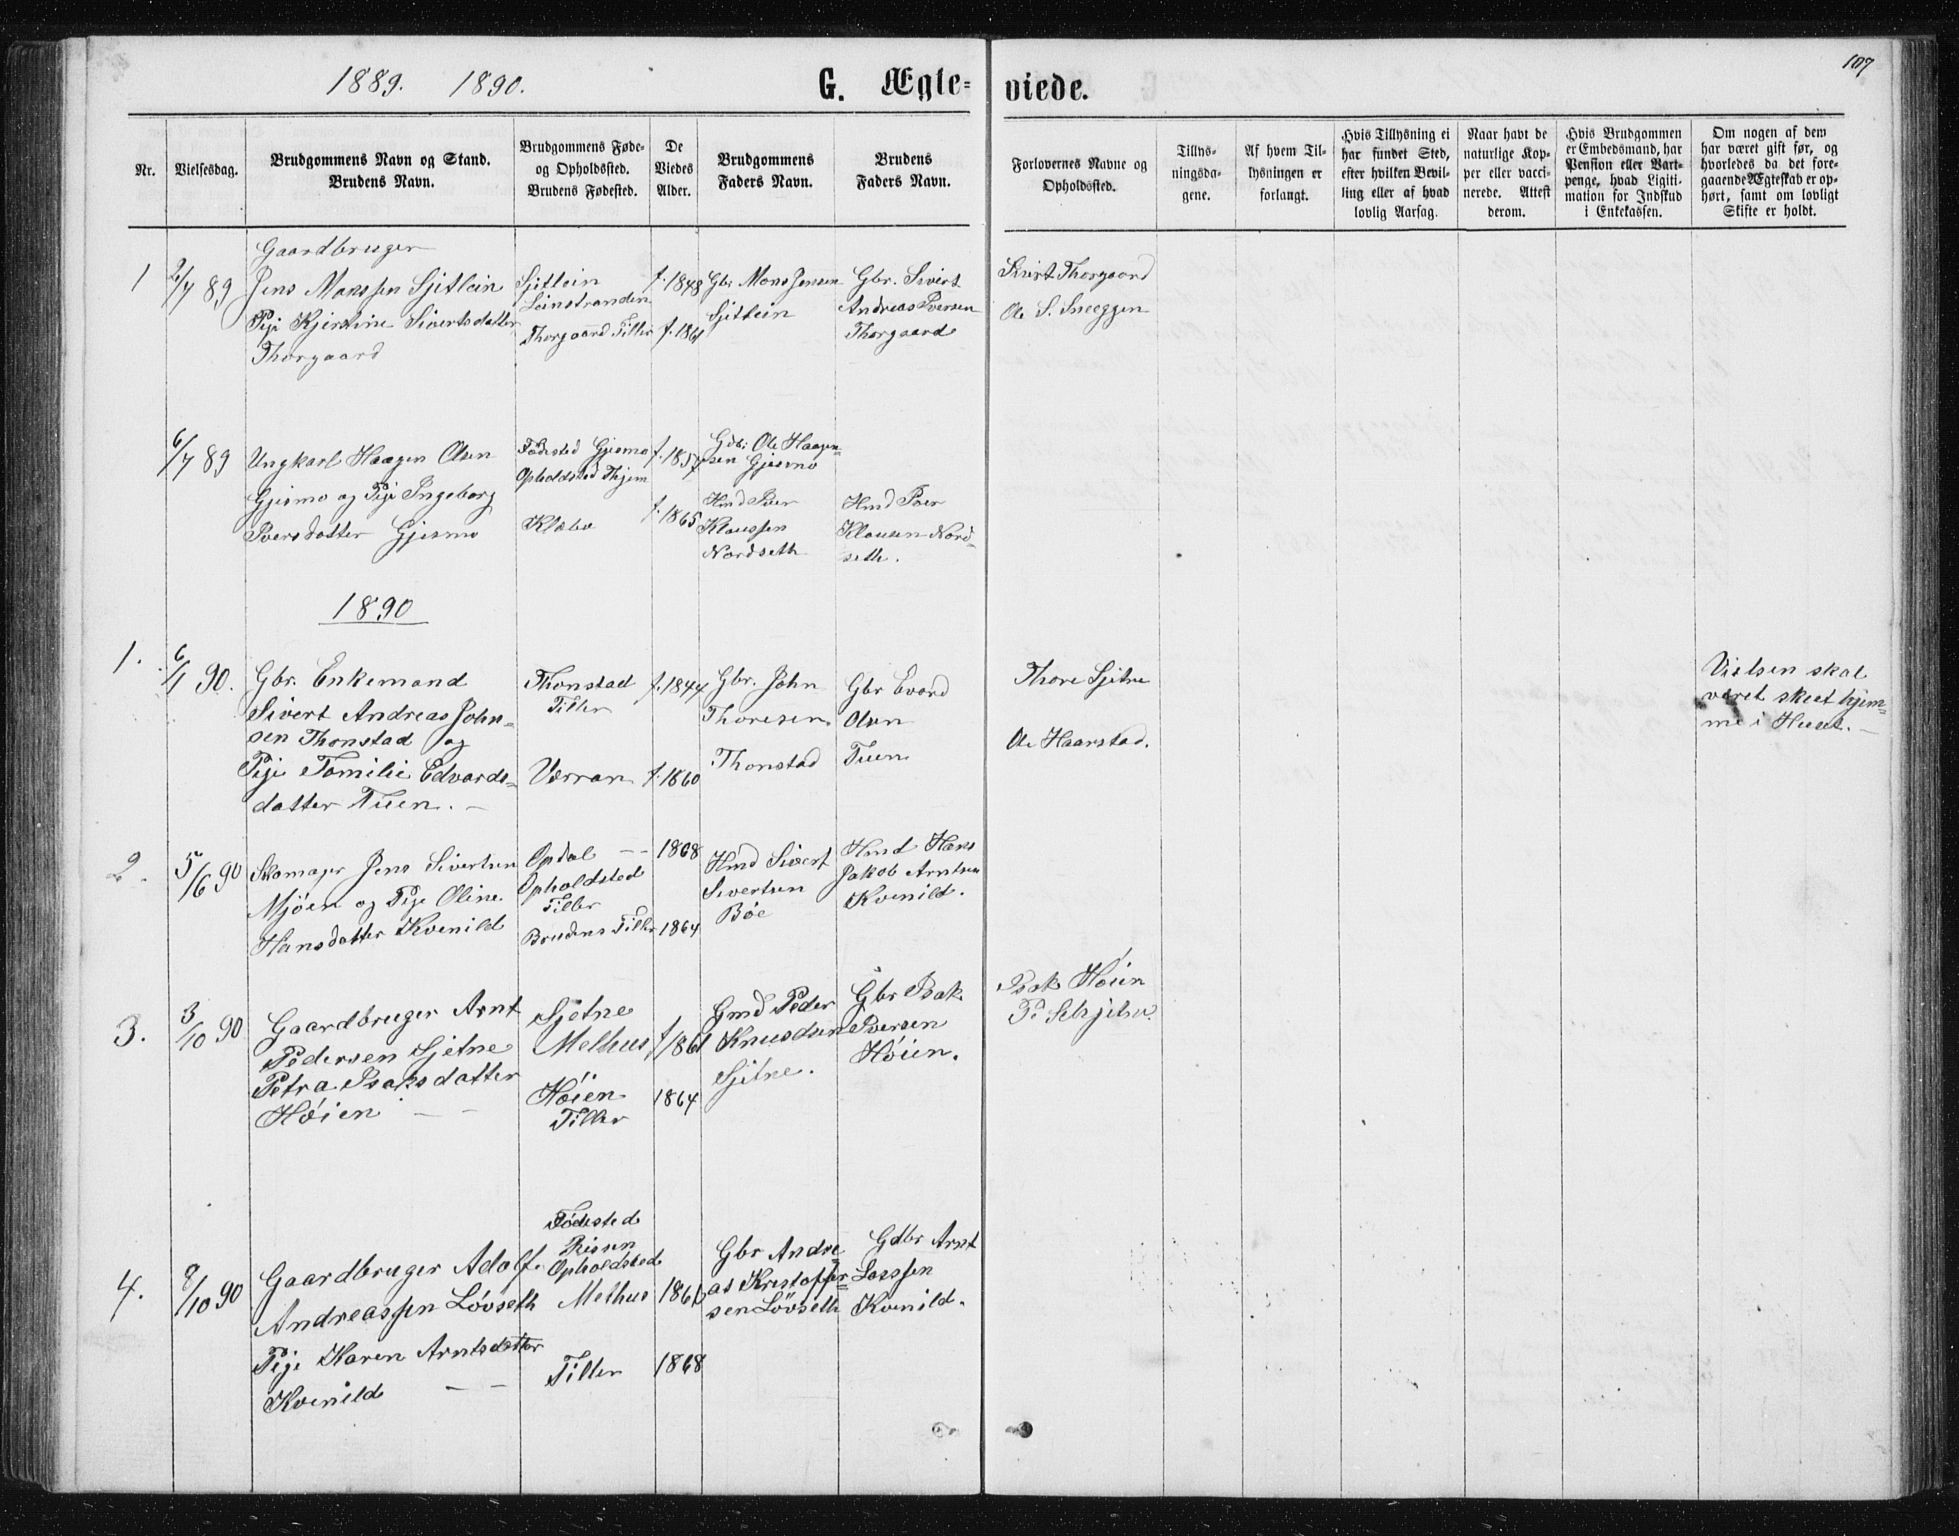 1889. 1890.
G. Ægte-
viede.
107
Nr.
Vielsesdag.
Brudgommens Navn og Stand.
Brudens Navn.
Brudgommens Føde-
og Opholdssted.
Brudens Fødested.
De
Viedes
Alder.
Brudgommens
Faders Navn.
Brudens
Faders Navn.
Forlovernes Navne og
Opholdssted.
Tillys-
ningsda-
gene.
Af hvem Til-
lysningen er
forlangt.
Hvis Tillysning ei
har fundet Sted,
efter hvilken Bevil-
ling eller af hvad
lovlig Aarsag.
Naar havt de
naturlige Kop-
per eller vacci-
nerede. Attest
derom.
Hvis Brudgommen
er Embedsmand, har
Pension eller Vart-
penge, hvad Ligiti-
mation for Indskud
i Enkekassen.
Om nogen af dem
har været gift før, og
hvorledes da det fore-
gaaende Ægteskab er op-
hørt, samt om lovligt
Skifte er holdt.
1
2/7 89
Gaardbruger
Jens Monssen Sjetlein
Pige Kjerstine Sivertsdatter
Thorgaard
Sjetlein
Leinstranden
Thorgaard Tiller
f. 1848
f. 1861
Gbr Mons Jensen
Sjetlein
Gbr. Sivert
Andreas Iversen
Thorgaard
Sivert Thorgaard
Ole S. Sneeggen
6/7 89
Ungkarl Haagen Olsen
Gjesmo og Pige Ingeborg
Iversdatter Gjesmo
Fødested Gjesmo
Opholdsted Thjem
Klæbo
f. 1857
f. 1865
Gdb: Ole Haagen-
sen Gjesmo
Hmd Iver
Klaussen
Nordseth
Hmd Iver
Klausen Nord-
seth.
1890
1.
6/1 90.
Gbr. Enkemand
Sivert Andreas John-
sen Thonstad og
Pige Tomilie Edvards-
datter Tuen. —
Thonstad
Tiller
Værran
f. 1844
f. 1860
Gbr. John
Thoresen
Thonstad
Gbr Evard
Olsen
Tuen
Thore Sjetne
Ole Haarstad.
Vielsen skal
været skeet hjem-
me i Huset. —
2.
5/6 90
Skomager Jens Sivertsen
Mjöen og Pige Oline
Hansdatter Kvenild
Opdal — —
Opholdsted
Tiller
Brudens Tiller
1868
1864
Hmd Sivert
Sivertsen
Böe
Hmd Hans
Jakob Arntsen
Kvenild.
3.
3/10 90
Gaardbruger Arnt
Pedersen Sjetne
Petra Isaksdatter
Höien — —
Sjetne
Melhus
Höien
Tiller
f 1861
1864
Gmd Peder
Knudsen
Sjetne.
Gbr Isak
Iversen
Höien.
Isak Höien
4.
8/10 90
Gaardbruger Adolf
Andreassen Lövseth
Pige Karen Arntsdatter
Kvenild — —
Födested
Rissen
Opholdsted
Melhus
Tiller
1868
Gbr Andre
as Kristoffer-
sen Lövseth
Gdbr Arnt
Larssen
Kvenild.